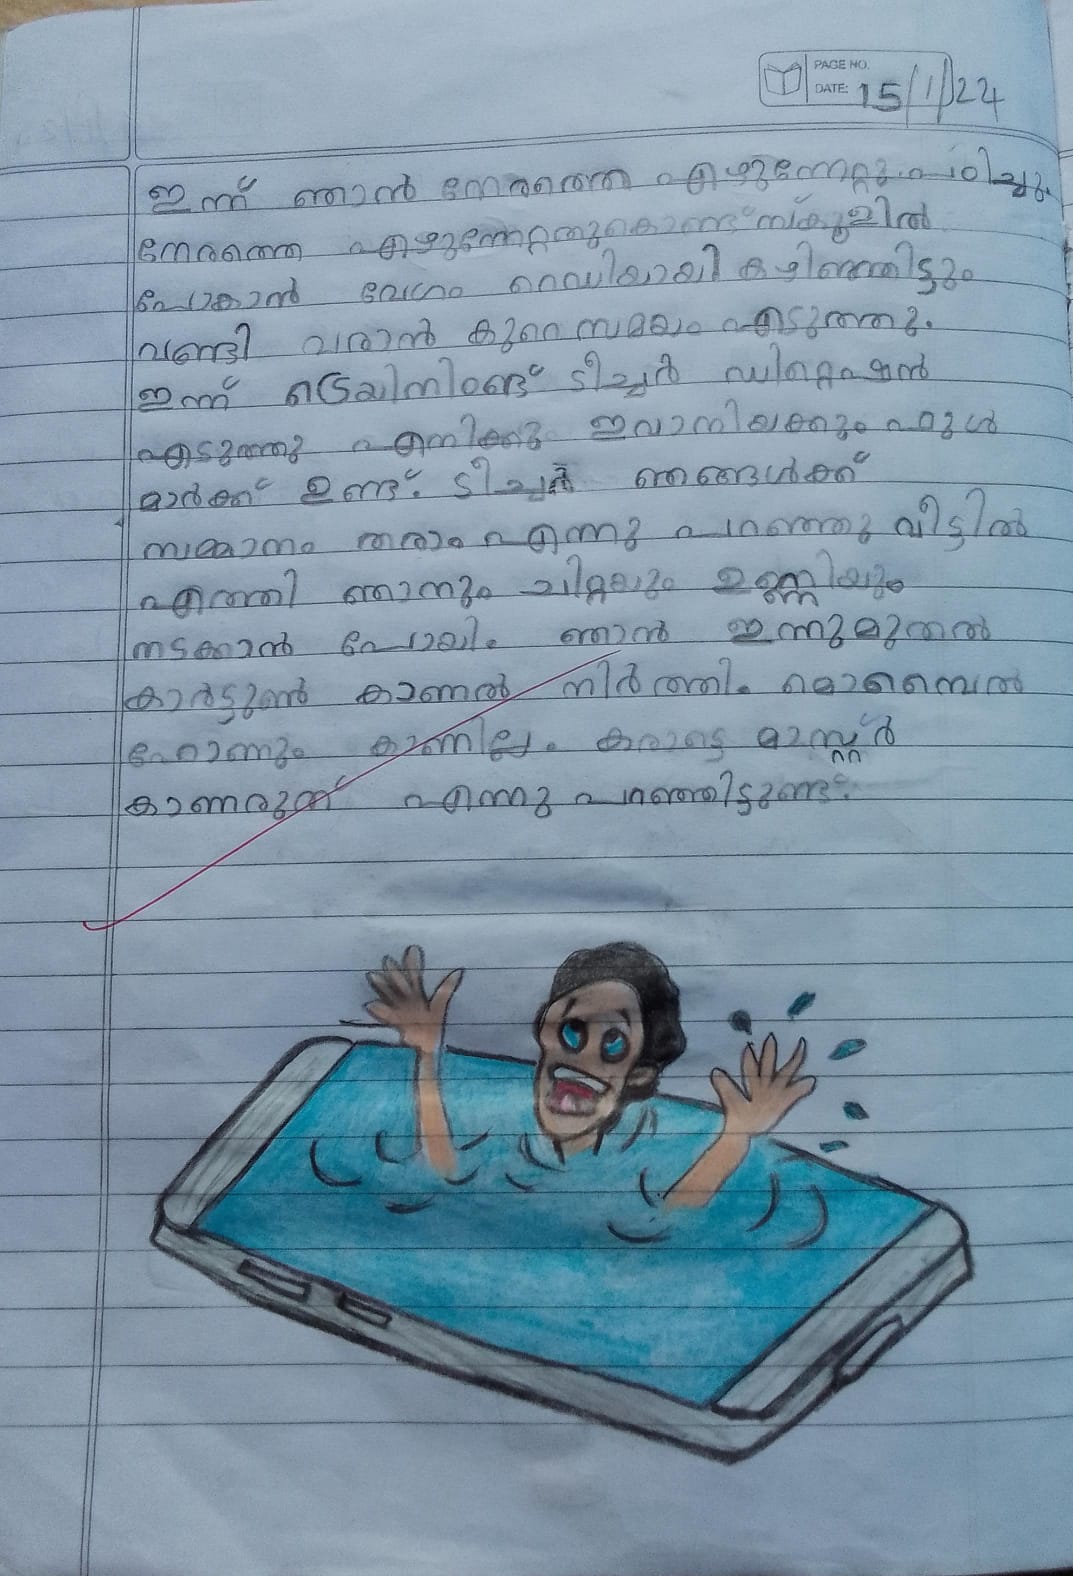 PAGE NO.
DATE: 15/1/24
ഇന്ന് ഞാൻ നേരത്തെ എഴുന്നേറ്റു. പഠിച്ചു.
നേരത്തെ എഴുന്നേറ്റതുകൊണ്ട് സ്കൂളിൽ
പോകാൻ വേഗം റെഡിയായി കഴിഞ്ഞിട്ടും
വണ്ടി വരാൻ കുറെ സമയം എടുത്തു.
ഇന്ന് ടീച്ചർ
എടുത്തു എനിക്കും ഇവാനിയക്കും ഫുൾ
മാർക്ക് ഉണ്ട്. ടീച്ചർ ഞങ്ങൾക്ക്
സമ്മാനം തരാം എന്നു പറഞ്ഞു വീട്ടിൽ
എത്തി ഞാനും ചില്ലയും ഉണ്ണിയും
നടക്കാൻ പോയി. ഞാൻ ഇന്നുമുതൽ
കാർട്ടൂൺ കാണൽ നിർത്തി. മൊബൈൽ
ഫോണും കാണില്ല. കരാട്ടെ മാസ്റ്റർ
കാണരുത് എന്നു പറഞ്ഞിട്ടുണ്ട്.